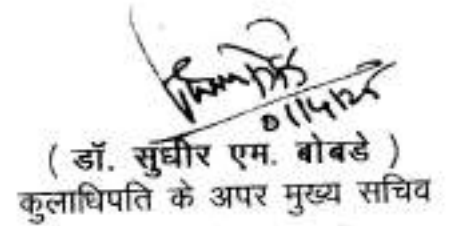 ( डॉ. सुधीर एम. बोबडे )
कुलाधिपति के अपर मुख्य सचिव